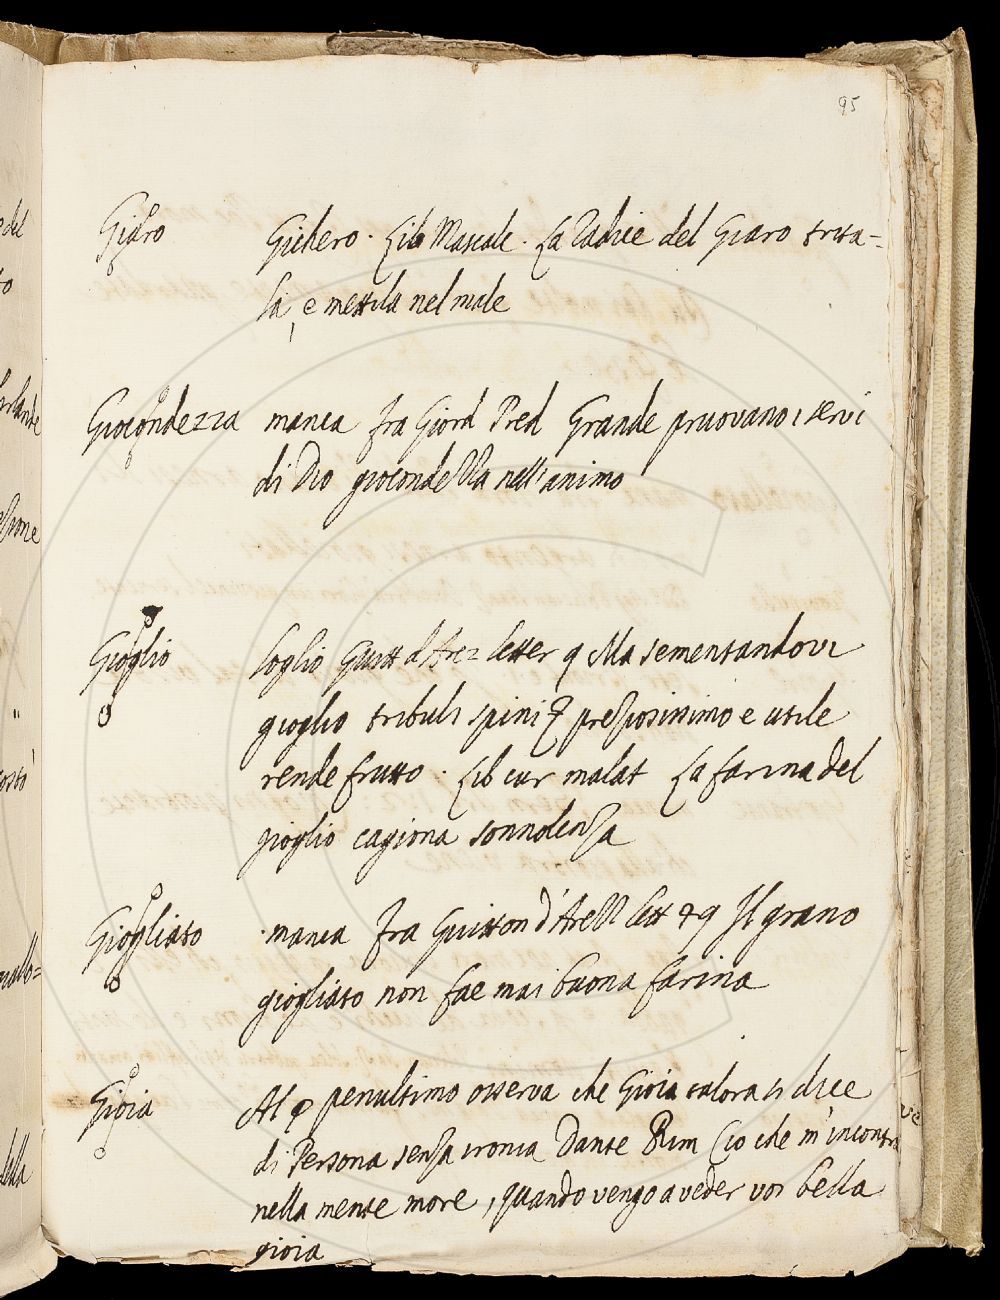 95
Giaro Gichero. Lib Mascalc. La Radice del Giaro trita=
la, e mettila nel male
Giocondezza manca fra Giord Pred Grande pruovano i servi
di Dio giocondezza nell'animo
Gioglio loglio Guitt d'Arez letter 9 Ma sementandovi
gioglio tribuli spini preziosissimo e utile
rende frutto. Lib cur malat La farina del
gioglio cagiona sonnolenza
Giogliato manca fra Guitton d'Arezz lett 9 Il grano
giogliato non fae mai buona farina
Gioia Al penultimo osserva che Gioia talora si dice
di Persona senza ironia Dante Rim Ciò che m'incontra
nella mente more, quando vengo a veder voi bella
gioia